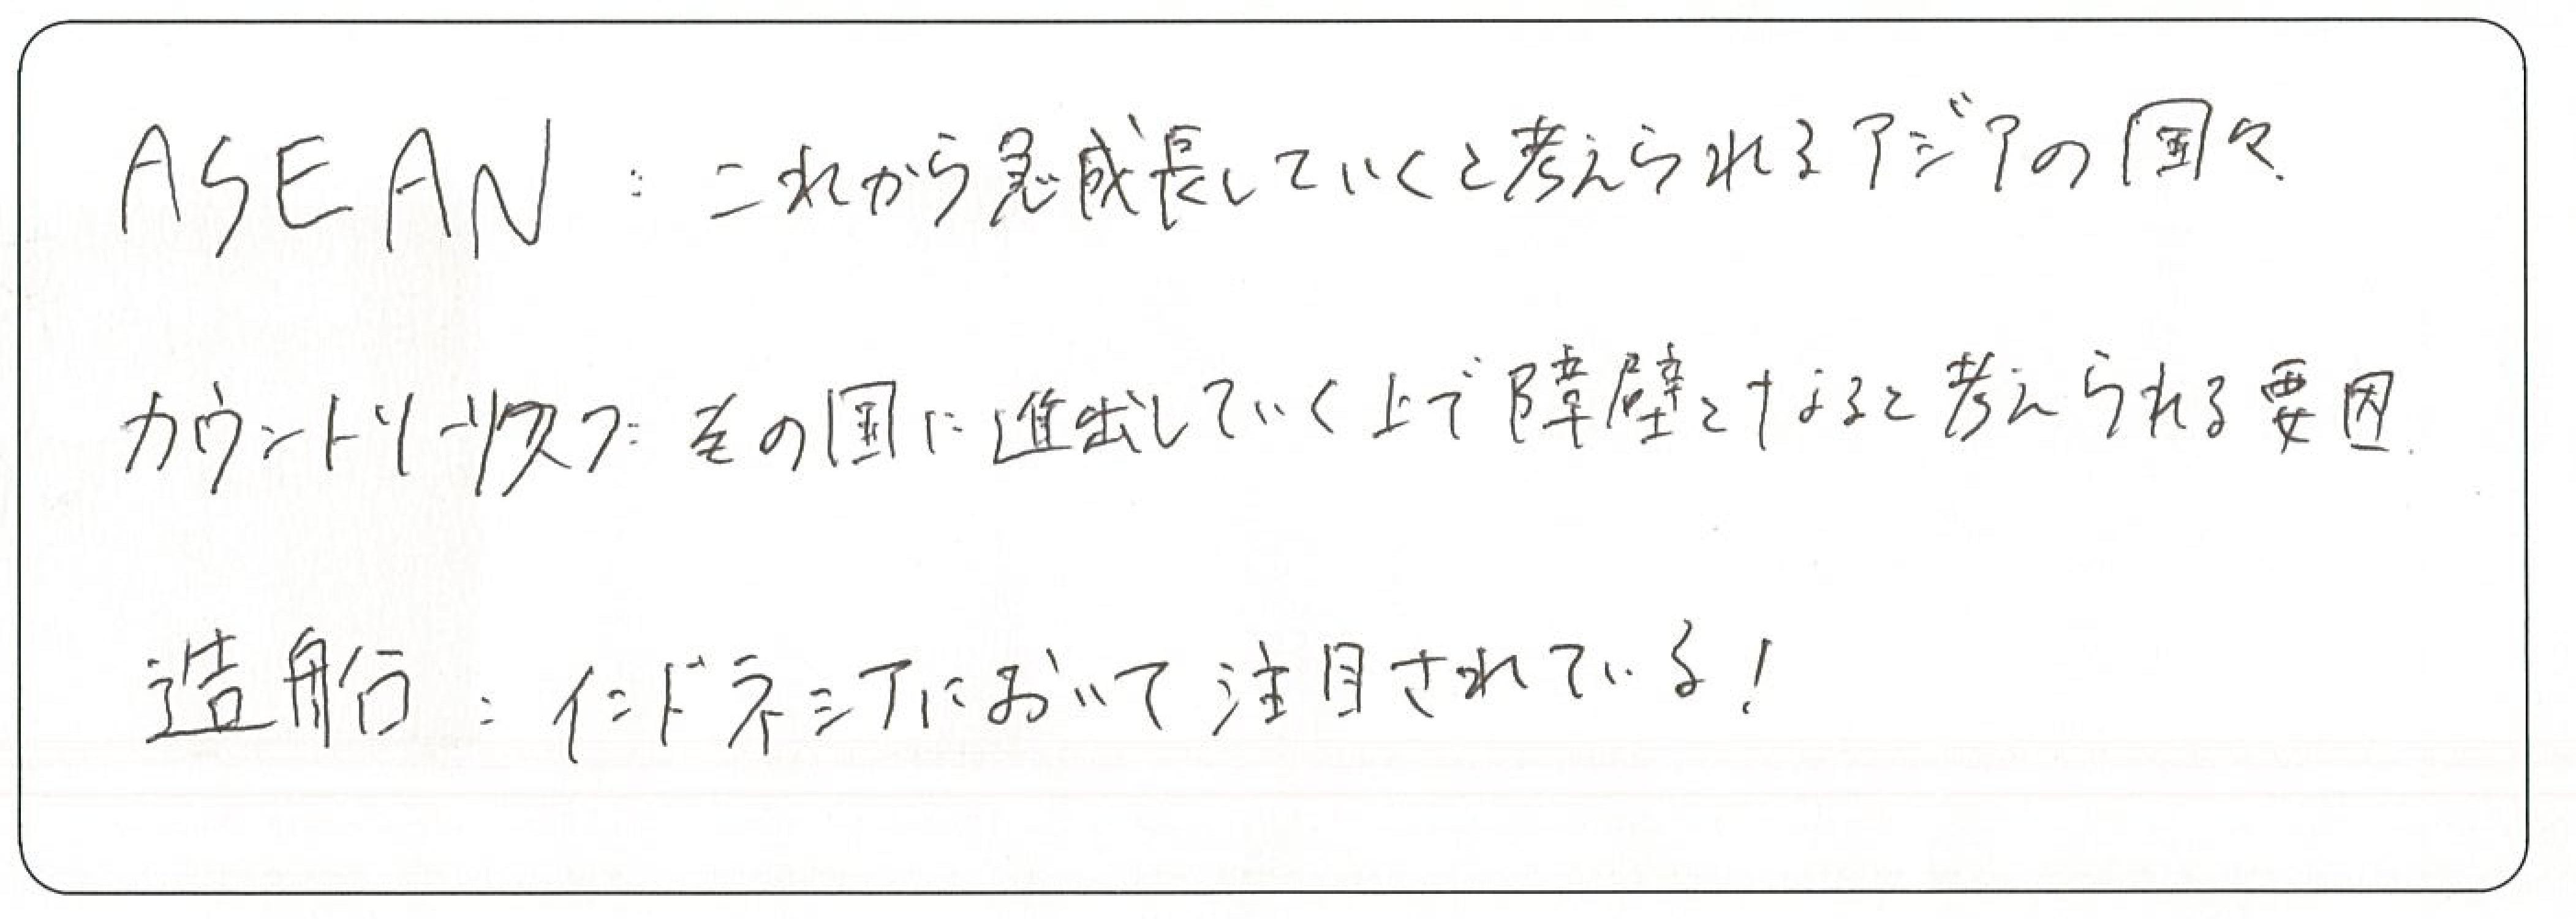 ASEAN：これから急成長していくと考えられるアジアの国々.
カウントリーリスク：その国に進出していく上で障壁となると考えられる要因.
造船：インドネシアにおいて注目されている！